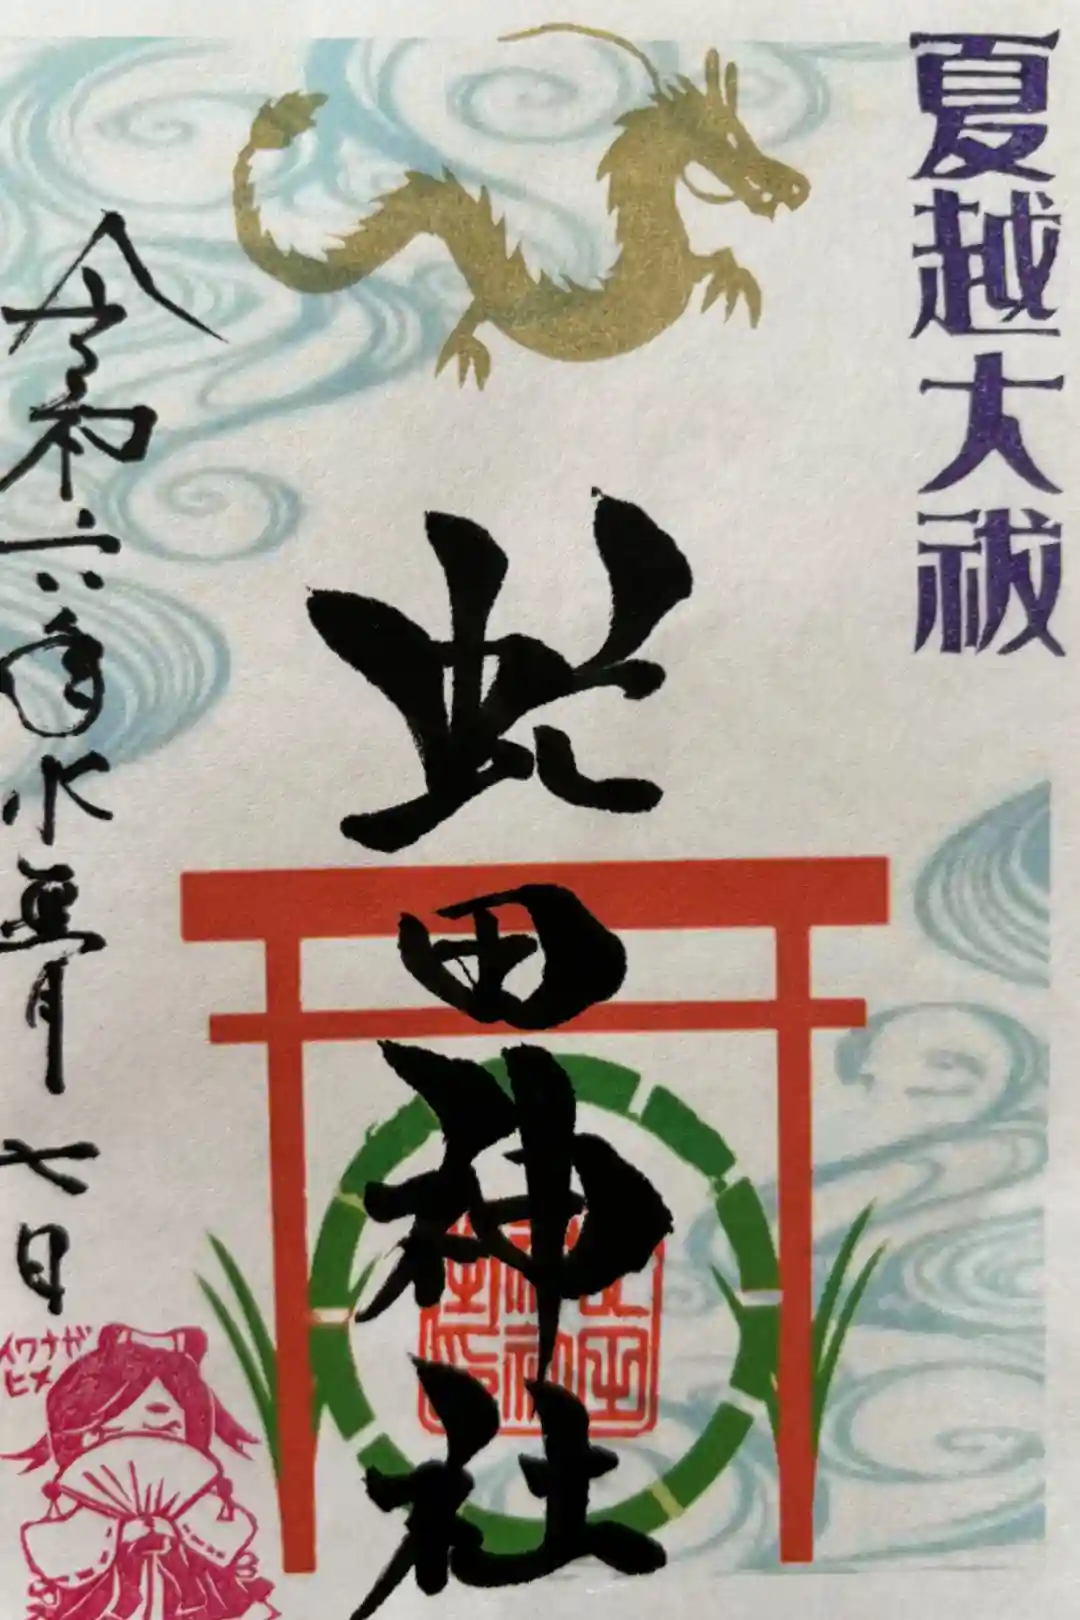 夏越大祓
此田神社
令和六年水無月七日
イワナガ
ヒメ